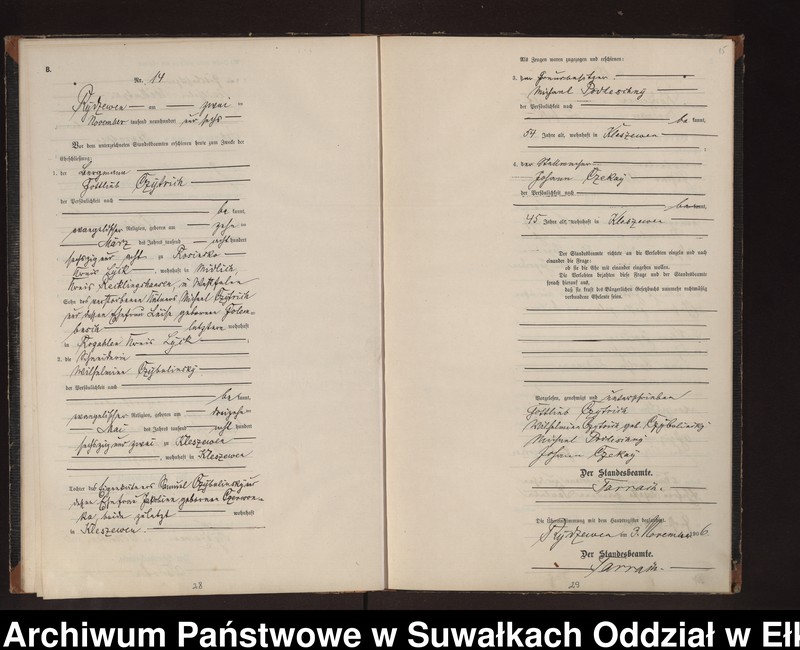 B.
Nr. 14
Rydzewen am zwei ten
November tausend neunhundert und sechs
Vor dem unterzeichneten Standesbeamten erschienen heute zum Zwecke der
Eheschließung:
1. der Bergmann
Gottlieb Czybrich
der Persönlichkeit nach
be kannt,
evangelischer Religion, geboren am zehn ten
März des Jahres tausend acht hundert
sechszig und acht zu
Kreis Lyck, wohnhaft in
Kreis Recklinghausen, in Westfalen
Sohn des verstorbenen Michael
und dessen Ehefrau Luise geborenen
letztere wohnhaft
in Rogahlen Kreis Lyck
2. die Schneiderin
Wilhelmine Czybulinsky
der Persönlichkeit nach
be kannt,
evangelischer Religion, geboren am dreizehn ten
Mai des Jahres tausend acht hundert
sechszig und zwei zu Kleszewen
, wohnhaft in Kleszewen
Tochter des Samuel Czybulinsky und
dessen Ehefrau geborenen
beide zuletzt wohnhaft
in Kleszewen.
28
15
Als Zeugen waren zugezogen und erschienen:
3. der
Michael Podleschny
der Persönlichkeit nach
be kannt,
54 Jahre alt, wohnhaft in Kleszewen
;
4. der Stellmacher
Johann Czekay
der Persönlichkeit nach
be kannt,
45 Jahre alt, wohnhaft in Kleszewen
Der Standesbeamte richtete an die Verlobten einzeln und nach
einander die Frage:
ob sie die Ehe mit einander eingehen wollen.
Die Verlobten bejahten diese Frage und der Standesbeamte
sprach hierauf aus,
daß sie kraft des Bürgerlichen Gesetzbuchs nunmehr rechtmäßig
verbundene Eheleute seien.
Vorgelesen, genehmigt und unterschrieben
Gottlieb
Wilhelmine geb. Czybulinsky
Michael Podleschny
Johann Czekay
Der Standesbeamte.
Die Übereinstimmung mit dem Hauptregister beglaubigt.
Rydzewen am 3. November 1906.
Der Standesbeamte.
29
Archiwum Państwowe w Suwałkach Oddział w Ełk